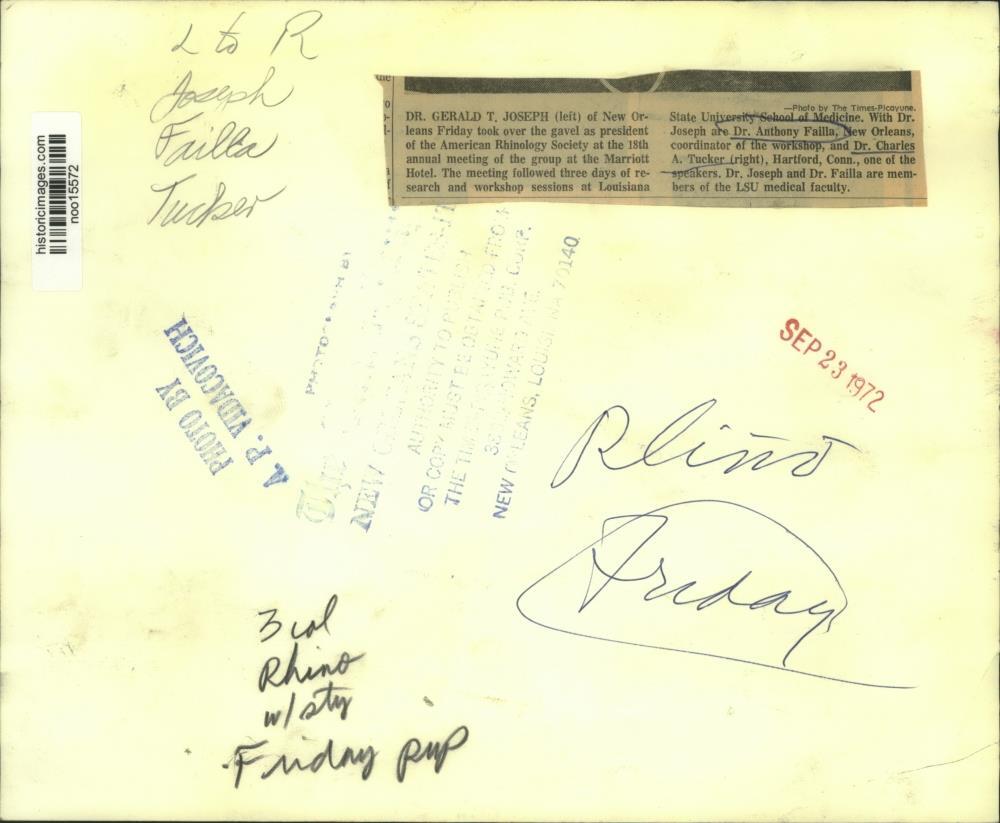 L to R
Joseph
Failla
Tucker
historicimages.com
noo15572
the
—Photo by The Times-Picayune.
DR. GERALD T. JOSEPH (left) of New Or-
leans Friday took over the gavel as president
of the American Rhinology Society at the 18th
annual meeting of the group at the Marriott
Hotel. The meeting followed three days of re-
search and workshop sessions at Louisiana
State University School of Medicine. With Dr.
Joseph are Dr. Anthony Failla, New Orleans,
coordinator of the workshop, and Dr. Charles
A. Tucker (right), Hartford, Conn., one of the
speakers. Dr. Joseph and Dr. Failla are mem-
bers of the LSU medical faculty.
PHOTO BY
A. P. VIDACOVICH
PHOTOGRAPH BY
The
NEW
AUTHORITY TO PUBLISH
OR COPY MUST BE OBTAINED FROM
THE TIMES PICAYUNE PUB. CORP.
HOWARD AVE.
NEW ORLEANS, LOUISIANA 70140
SEP 23 1972
Rhino
Friday
3 col
Rhino
w/ sty
Friday pup